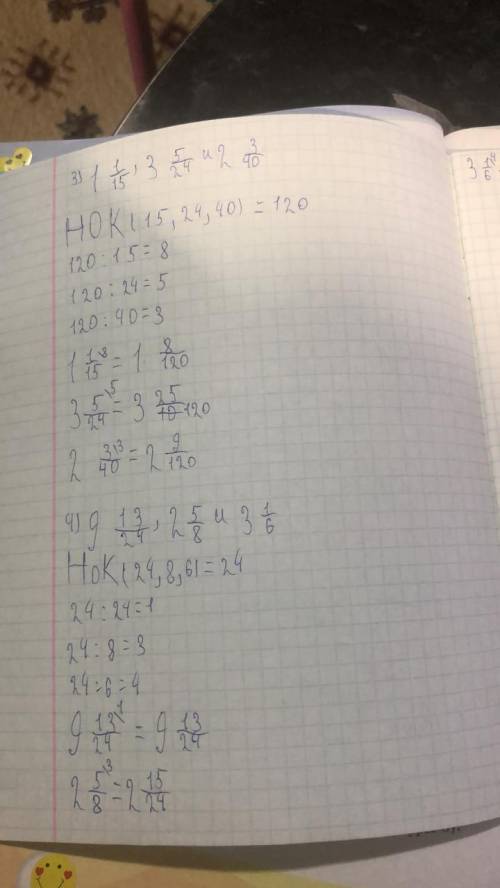 3) 1 1/15, 3 5/24 и 2 3/40
НОК(15, 24, 40) = 120
120 : 15 = 8
120 : 24 = 5
120 : 40 = 3
1 1/15 \8 = 1 8/120
3 5/24 \5 = 3 25/120
2 3/40 \3 = 2 9/120
4) 9 13/24, 2 5/8 и 3 1/6
НоК(24, 8, 6) = 24
24 : 24 = 1
24 : 8 = 3
24 : 6 = 4
9 13/24 \1 = 9 13/24
2 5/8 \3 = 2 15/24
3 1/6 \4 =